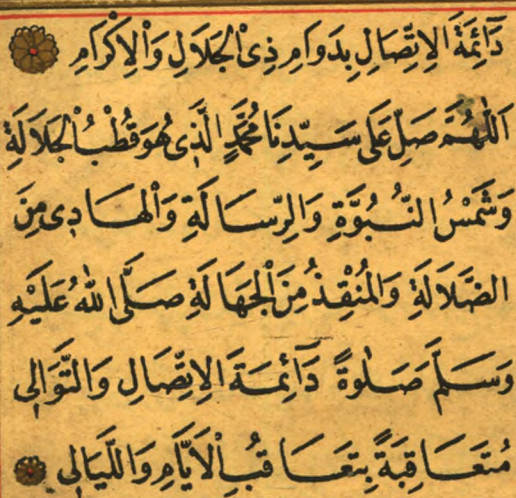 دَآئِمَةَ الْاِتِّصَالِ بِدَوَامِ ذِى الْجَلَالِ وَالْاِكْرَامِ
اَللّٰهُمَّ صَلِّ عَلٰى سَيِّدِنَا مُحَمَّدٍ الَّذِى هُوَ قُطْبُ الْجَلَالَةِ
وَشَمْسُ النُّبُوَّةِ وَالرِّسَالَةِ وَالْهَادِى مِنَ
الضَّلَالَةِ وَالْمُنْقِذُ مِنَ الْجَهَالَةِ صَلَّى اللّٰهُ عَلَيْهِ
وَسَلَّمَ صَلٰوةً دَآئِمَةَ الْاِتِّصَالِ وَالتَّوَالِى
مُتَعَاقِبَةً بِتَعَاقُبِ الْاَيَّامِ وَاللَّيَالِى